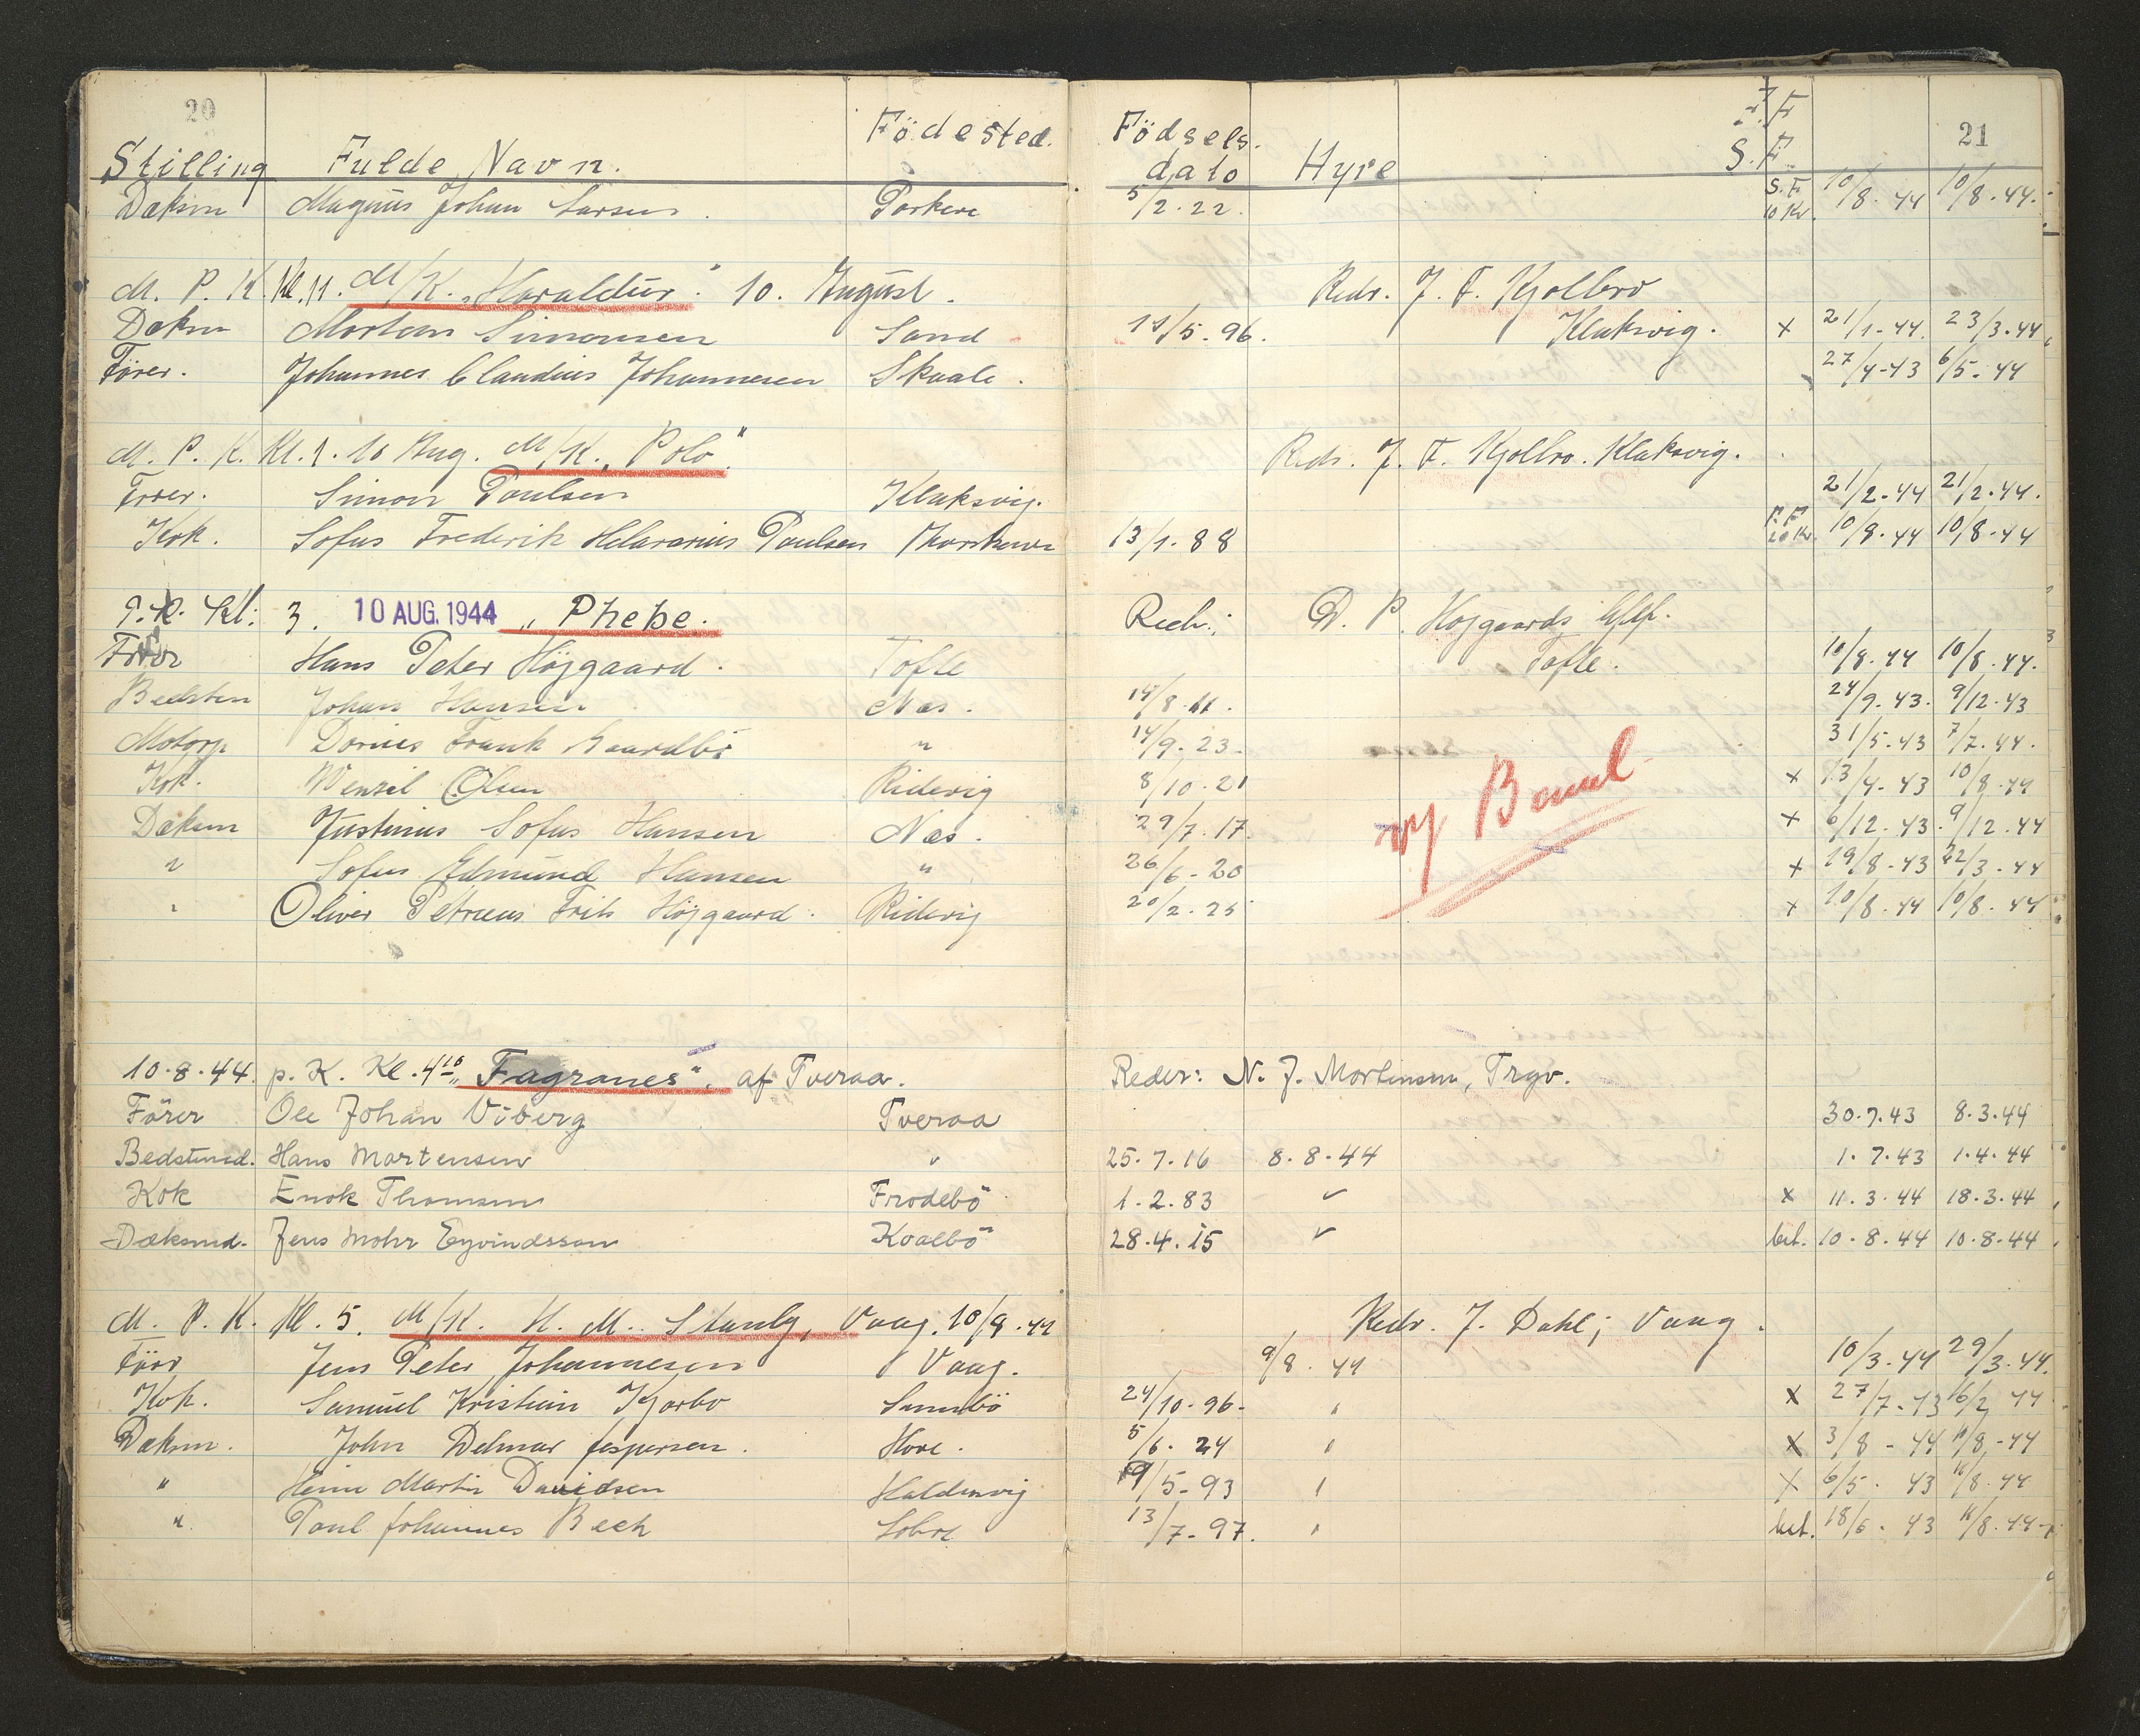 20
Stilling Fulde Navn. Födested. Födsels. dato Hyre F.F S.F. 21
Dæksm Magnus Johan Larsen. Porkere 5/2.22. S.F. 10 Kr. 10/8.44 10/8.44.
M. P. K. Kl. 11. M/K. „Haraldur" 10. August. Redr. J. F. Kjølbro
Dæksm Morten Simonsen Sand 11/5.96. Klaksvig. x 21/1-44. 23/3.44
Förer. Johannes Claudius Johannesen Skaale. 27/4-43 6/5.44
M. P. K. Kl. 1. 10 Aug. M/K. „Polo" Redr. J. F. Kjolbro. Klaksvig.
Förer. Simon Poulsen Klaksvig. 21/2-44 21/2.44.
Kok. Sofus Frederik Poulsen Thorshavn 13/1.88 10/8.44 10/8.44
P.K. Kl: 3. 10 AUG. 1944 „Phebe. Redr.: D. P. Højgaards Eftf.
Förer Hans Peter Höjgaard. Tofte Tofte. 10/8.44 10/8.44.
Bedsten Johan Hansen Næs. 14/8.11. 24/9.43. 9/12.43
Motorp Dorius Frank Gaardbö " 14/9.23. 31/5.43 7/7.44.
Kok. Wensil Olsen Ridevig 8/10.21 x 13/4-43 10/8.44
Dæksm Justinus Sofus Hansen Næs. 29/7.17. x 6/12.43. 9/12.44
" Sofus Edmund Hansen " 26/6-20 x 19/8-43 22/3.44
" Oliver Petreus Frits Höjgaard. Ridevig 20/2.25 x 10/8.44 10/8.44
10.8.44. p. K. Kl. 4 10 „Fagranes". af Tveraa. Reder: N. J. Mortensen, Trgv.
Förer Ole Johan Viberg Tveraa 30.7.43 8.3.44
Bedstmd. Hans Mortensen " 25.7.16 8.8.44 1.7.43 1.4.44
Kok Enok Thomsen Frodebö 1.2.83 " x 11.3.44 18.3.44
Dæksmd. Jens Mohr Eyvindsson Kvalbö 28.4.15 " bet. 10.8.44 10.8.44
M. P. K. Kl. 5. M/K. H. M. Stanly, Vaag. 10/8.44 Redr. J. Dahl; Vaag.
Förer Jens Peter Johannesen Vaag. 9/8.44 10/3.44 29/3.44.
Kok. Samuel Kristian Kjærbo Sumbö 24/10.96. " x 27/7.43 16/2 44
Dæksm. John Delmar Jespersen. Hove. 5/6.24 " x 3/8-44 10/8.-44
" Heine Martin Davidsen Haldersvig 19/5-93 " x 6/5. 43 10/8.44
" Poul Johannes Bech 13/7-97. " bet. 18/6. 43 10/8.44